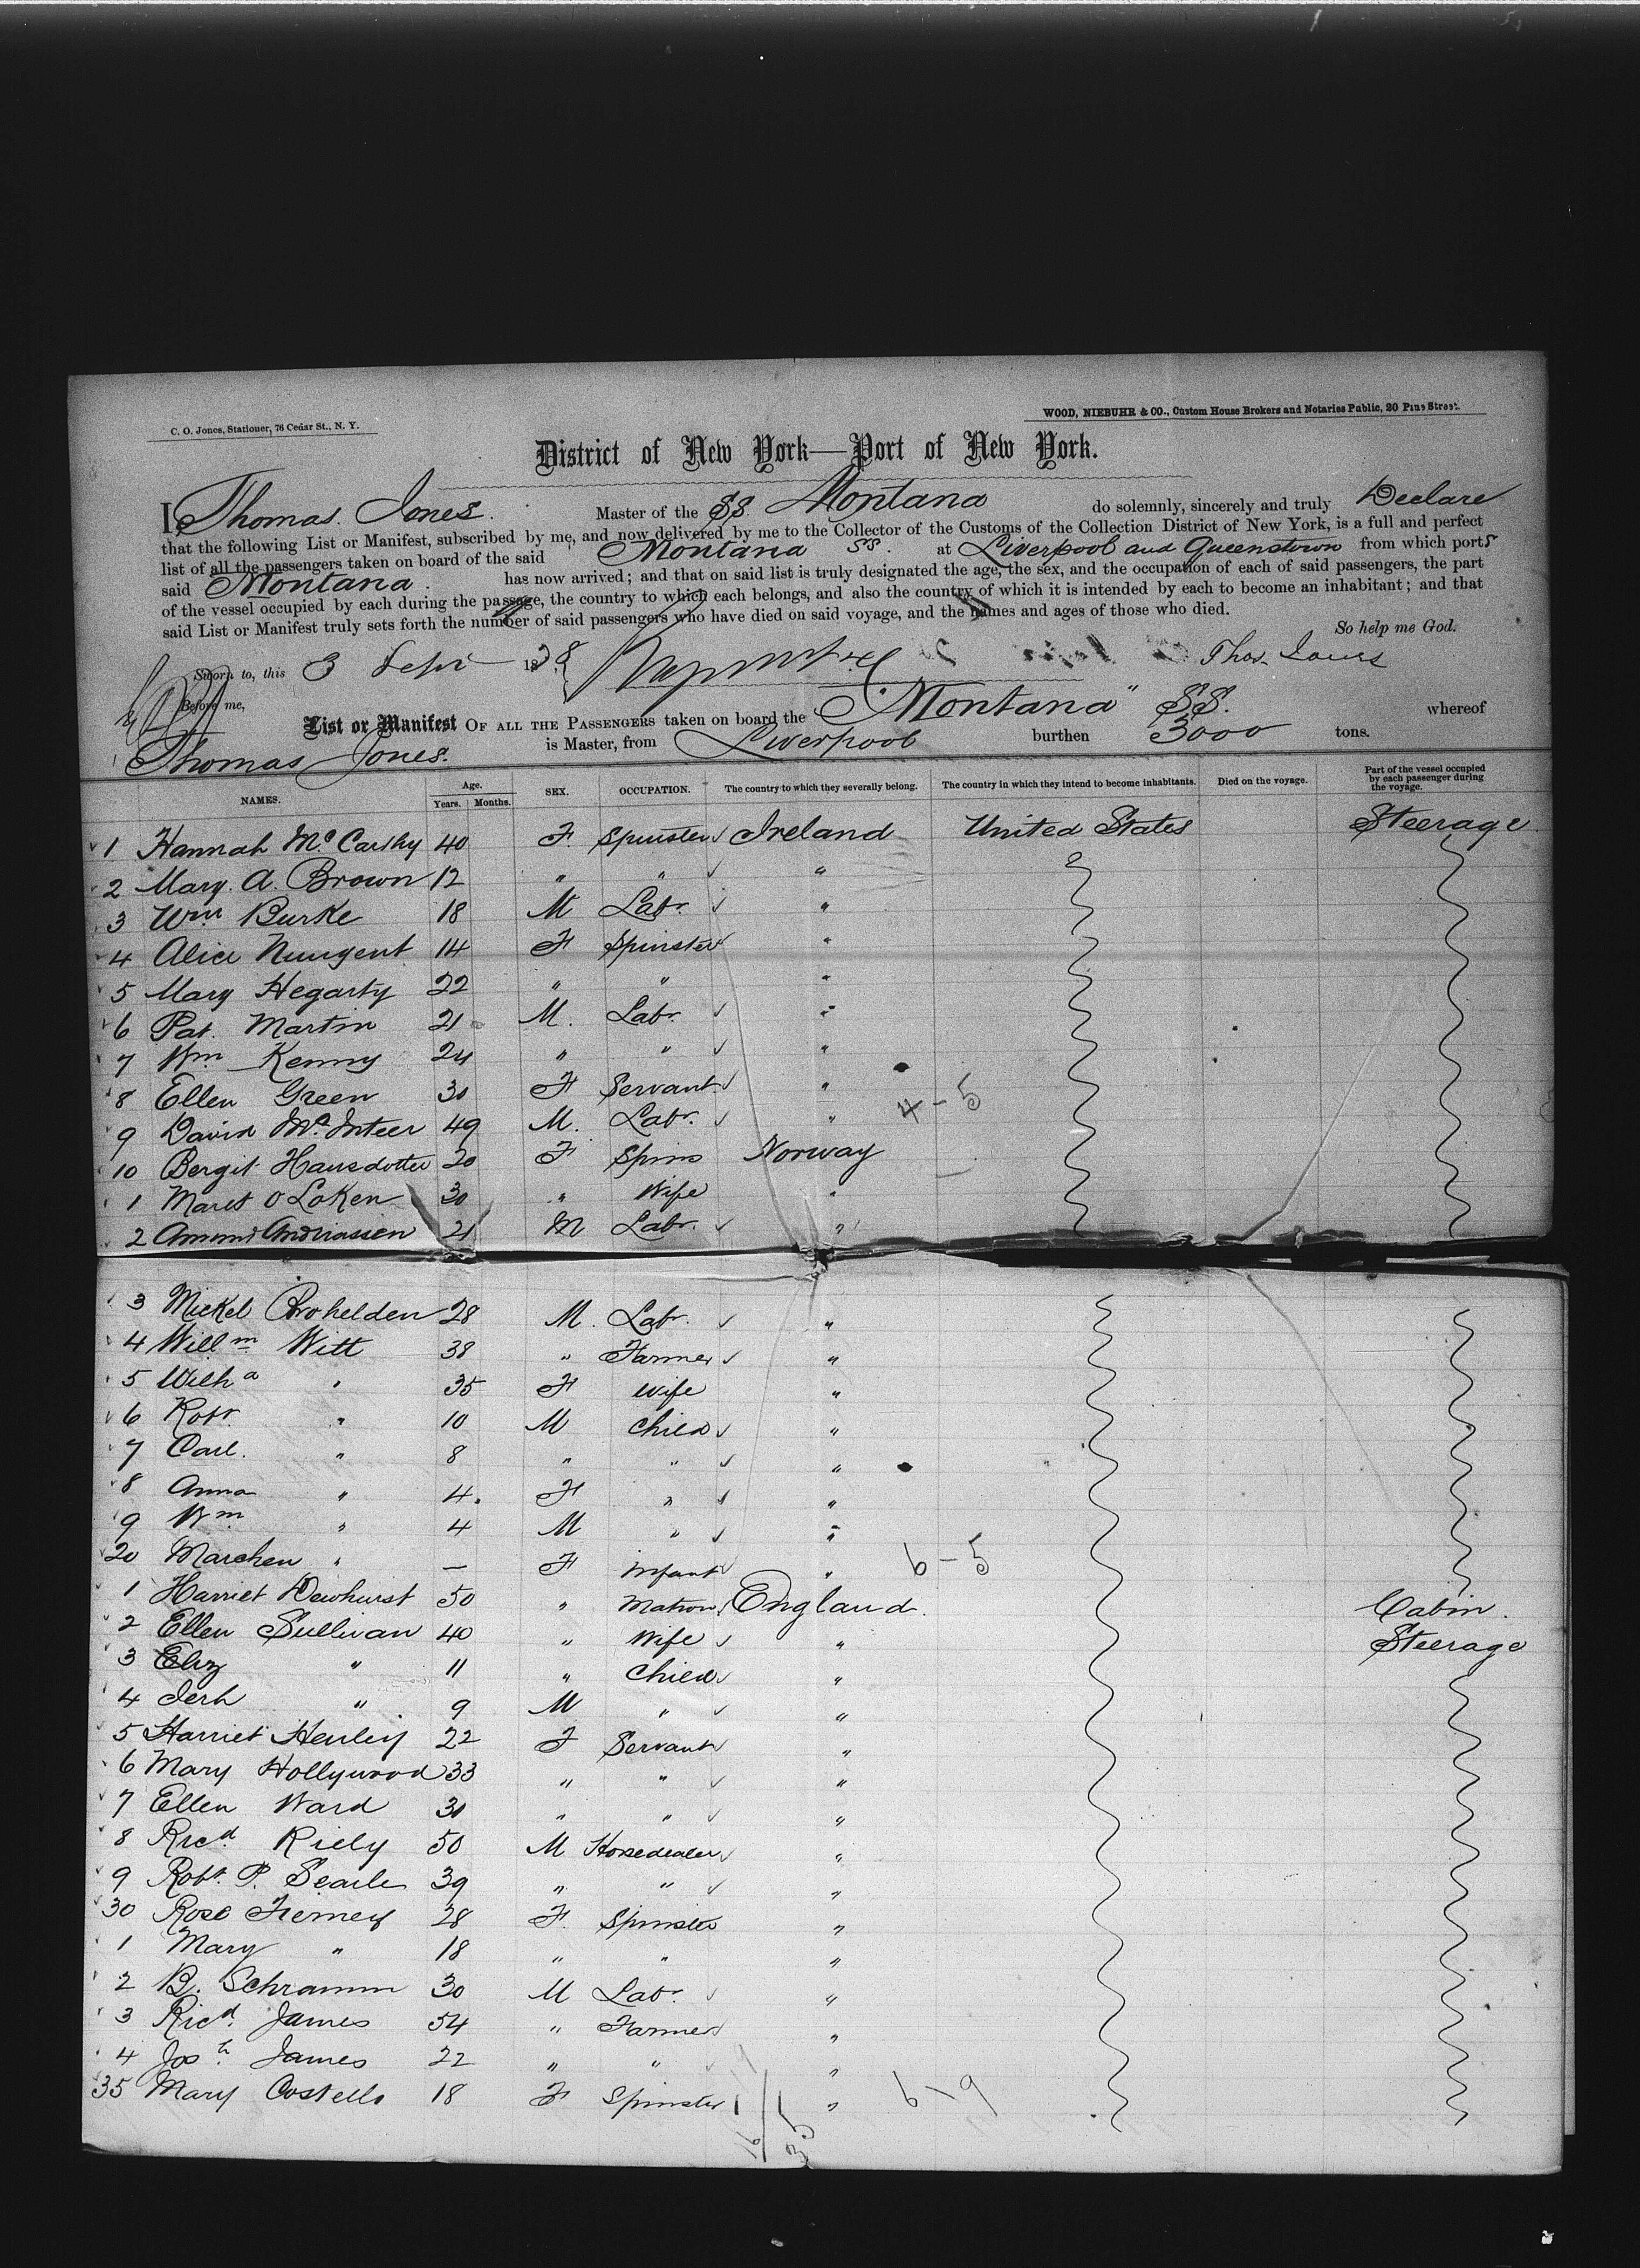 C. O. Jones, Stationer, 76 Cedar St., N. Y.
WOOD, NIEBUHR & CO., Custom House Brokers and Notaries Public, 20 Pine Street.
District of New York—Port of New York.
I Thomas Jones Master of the SS. Montana do solemnly, sincerely and truly Declare
that the following List or Manifest, subscribed by me, and now delivered by me to the Collector of the Customs of the Collection District of New York, is a full and perfect
list of all the passengers taken on board of the said Montana SS. at Liverpool and Queenstown from which ports
said Montana has now arrived; and that on said list is truly designated the age, the sex, and the occupation of each of said passengers, the part
of the vessel occupied by each during the passage, the country to which each belongs, and also the country of which it is intended by each to become an inhabitant; and that
said List or Manifest truly sets forth the number of said passengers who have died on said voyage, and the names and ages of those who died.
So help me God.
Sworn to, this 3 Sept 1878 Thos. Jones
Before me,
List or Manifest OF ALL THE PASSENGERS taken on board the "Montana" SS. whereof
Thomas Jones. is Master, from Liverpool burthen 3000 tons.
NAMES. Age. Years. Months. SEX. OCCUPATION. The country to which they severally belong. The country in which they intend to become inhabitants. Died on the voyage. Part of the vessel occupied by each passenger during the voyage.
1 Hannah McCarthy 40 F. Spinster Ireland United States Steerage
2 Mary. A. Brown 12 " " "
3 Wm Burke 18 M Labr. "
4 Alice Nuugent 14 F Spinster "
5 Mary Hegarty 22 " " "
6 Pat. Martin 21 M. Labr. "
7 Wm Kenny 24 " " "
8 Ellen Green 30 F Servant "
9 David McInteer 49 M. Labr. " 4-5
10 Bergit Hansdotter 20 F Spins Norway
1 Maret O Loken 30 " Wife "
2 Andriassen 21 M Labr. "
3 Mickel 28 M. Labr. "
4 Willm Witt 38 " Farmer "
5 Wilha " 35 F Wife "
6 Robt " 10 M Child "
7 Carl. " 8 " " "
8 Anna " 4. F " "
9 Wm " 4 M " "
20 Marchen " — F Infant " 6-5
1 Harriet Dewhurst 50 " Matron England. Cabin.
2 Ellen Sullivan 40 " Wife " Steerage
3 Eliz " 11 " Child "
4 Jerh " 9 M " "
5 Harriet Henley 22 F Servant "
6 Mary Hollywood 33 " " "
7 Ellen Ward 30 " " "
8 Ricd. Riely 50 M Horsedealer "
9 Robt. P. Searle 39 " " "
30 Rose Tierney 28 F. Spinster "
1 Mary " 18 " " "
2 B. Schramm 30 M Labr. "
3 Ricd. James 54 " Farmer "
4 Josh James 22 " " "
35 Mary Costello 18 F Spinster " 6-19
16/19
35